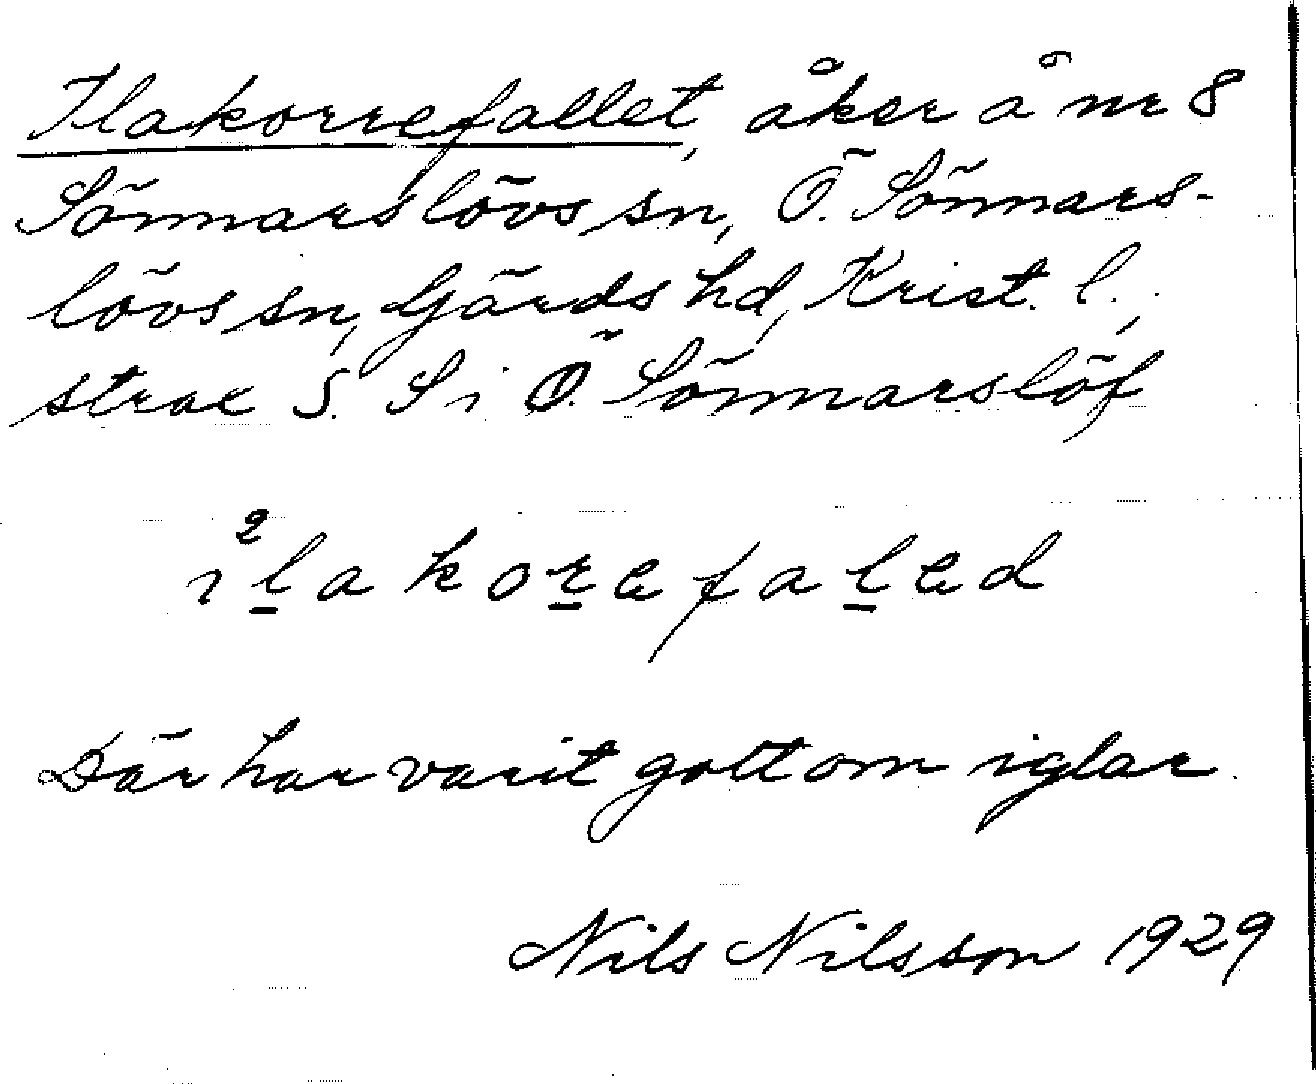 Ilakorrefallet, åker å nr 8
Sönnarslövs sn, Ö. Sönnars-
lövs sn, Gärds hd, Krist. l.,
strax S. S i Ö. Sönnarslöf
i²lakorefaled
Där har varit gott om iglar.
Nils Nilsson 1929